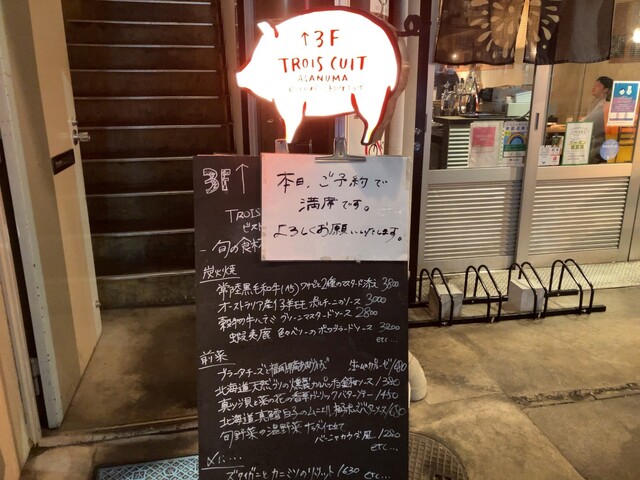 ↑3F
TROIS CUIT
ASANUMA
3F↑
本日、ご予約で
満席です。
よろしくお願いいたします。
TROIS
ビスト
旬の食材
炭火焼
常陸黒毛和牛(A5) ワサビと2種のマスタード添え 3800
オーストラリア産仔羊モモ ポルチーニのソース 3000
穀物牛ハラミ グリーンマスタードソース 2800
蝦夷鹿 赤いベリーのポワヴラードソース 3200
etc...
前菜
ブラータチーズと福岡県産あまおう 1680
北海道天然ブリの燻製カルパッチョ 金柑ソース 1380
真ツブ貝と菜の花の香草ガーリックバターソテー 1450
北海道真鱈白子のムニエル 1650
旬野菜の温野菜
バーニャカウダ風 1280
etc...
〆に...
ズワイガニとカニミソのリゾット 1630
etc...